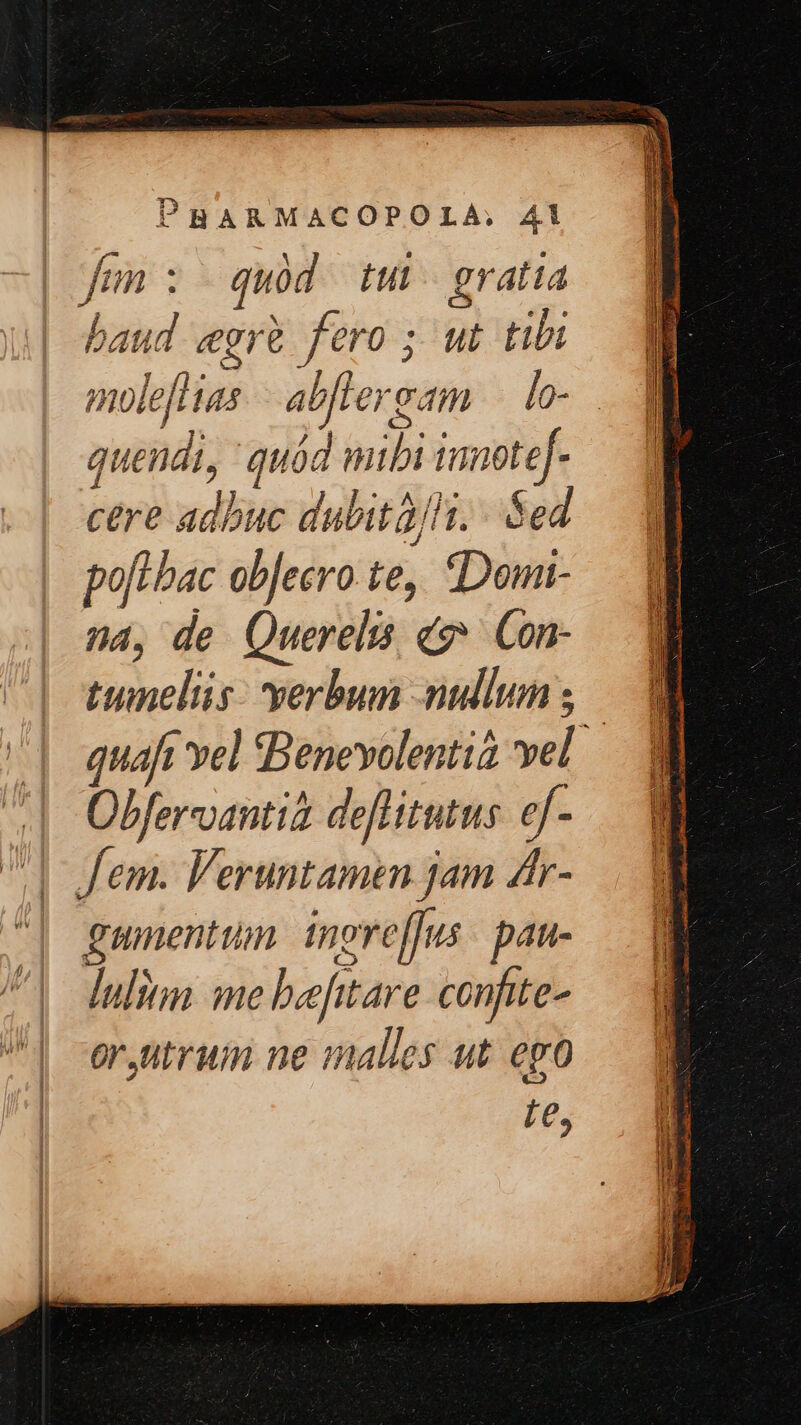 PHARMACOPOLA. 41
ſim : quòd tui gratia
haud ægrè fero ; ut tibi
moleſtias abſtergam lo-
quendi, quòd mihi innoteſ-
cere adhuc dubitâſti. Sed
poſthac obſecro te, Domi-
na, de Querelis & Con-
tumeliis verbum nullum ;
quaſi vel Benevolentiâ vel
Obſervantiâ deſtitutus eſ-
ſem. Veruntamen jam Ar-
gumentum ingreſſus pau-
lulùm me hæſitare confite-
or, utrum ne malles ut ego
te,